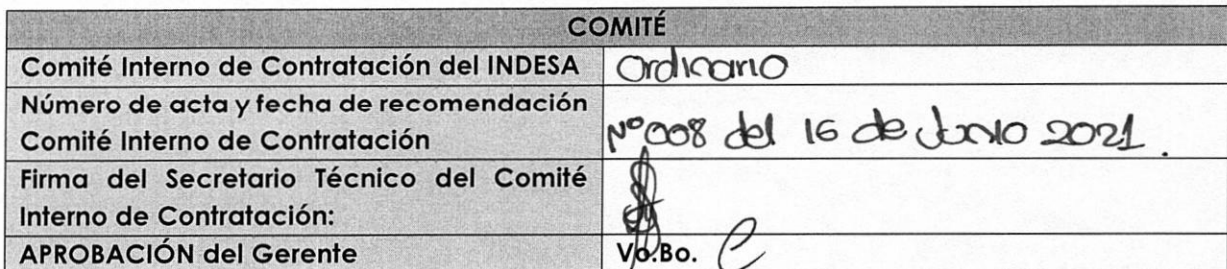 COMITÉ
Comité Interno de Contratación del INDESA Ordinario
Número de acta y fecha de recomendación
Comité Interno de Contratación N° 008 del 16 de Junio 2021.
Firma del Secretario Técnico del Comité
Interno de Contratación:
APROBACIÓN del Gerente Vo.Bo.